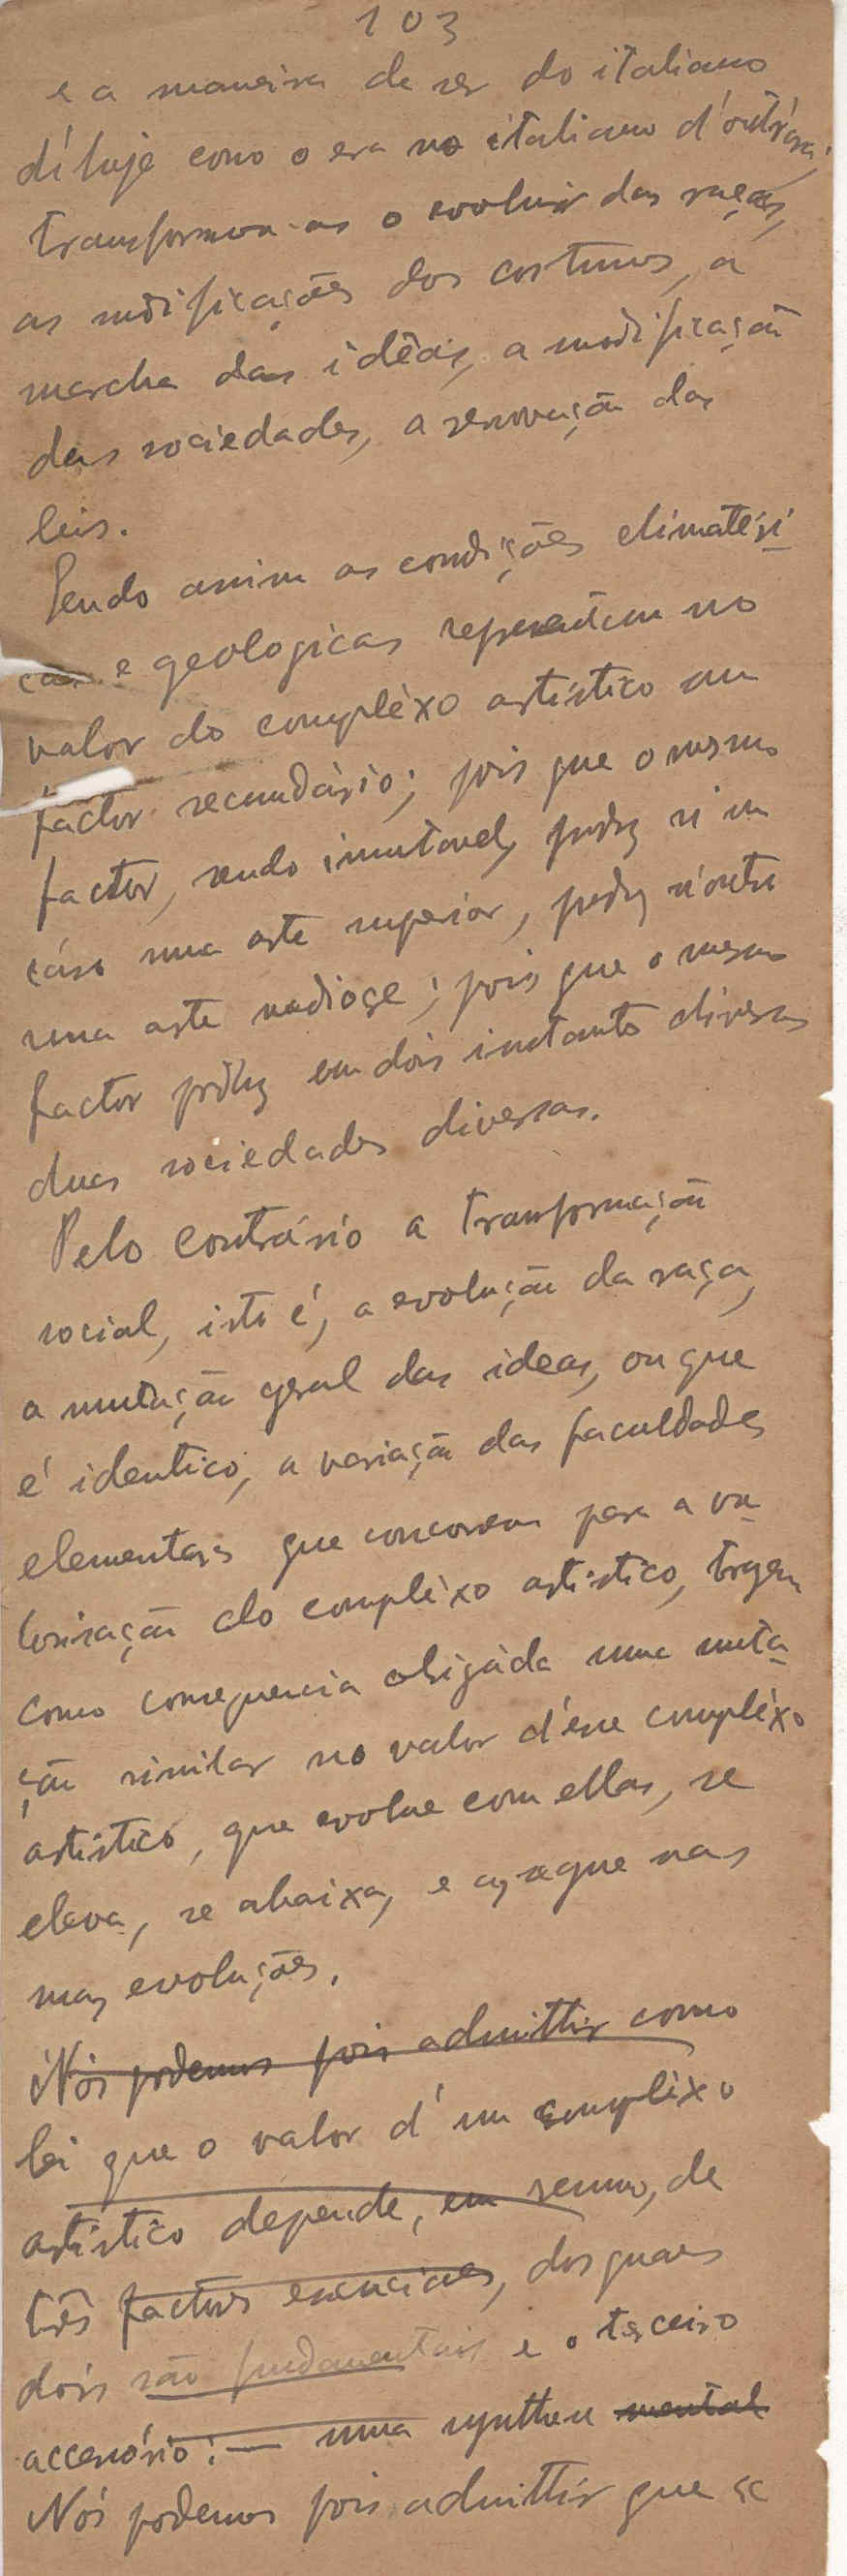 103
e a maneira de ser do italiano
d'hoje como o era no italiano d'outr'ora;
transformou-as o evoluir das raças,
as modificações dos costumes, a
marcha das idêas, a modificação
das sociedades, a renovação das
leis.
Sendo assim as condições climatéri
cas e geologicas representam no
valor do complèxo artístico um
factor secundário; pois que o mesmo
factor, sendo immutavel, produz n'um
cáso uma arte superior, produz n'outro
uma arte mediocre; pois que o mesmo
factor produz em dois instantes diversos
duas sociedades diversas.
Pelo contrário a transformação
social, isto é, a evolução da raça,
a mutação geral das ideas, ou que
é identico, a variação das faculdades
elementares que concorrem para a va
lorisação do complèxo artistico, trazem
como consequencia obrigáda uma muta
ção similar no valor d'esse complèxo
artístico, que evolue com ellas, se
eleva, se abaixa, e as segue nas
suas evoluções.
Nós podemos pois admittir como
lei que o valor d'um complèxo
artístico depende, em summa, de
três factores essenciaes, dos quaes
dois são fundamentais e o terceiro
accessório: — uma synthese mental
Nós podemos pois admittir que se